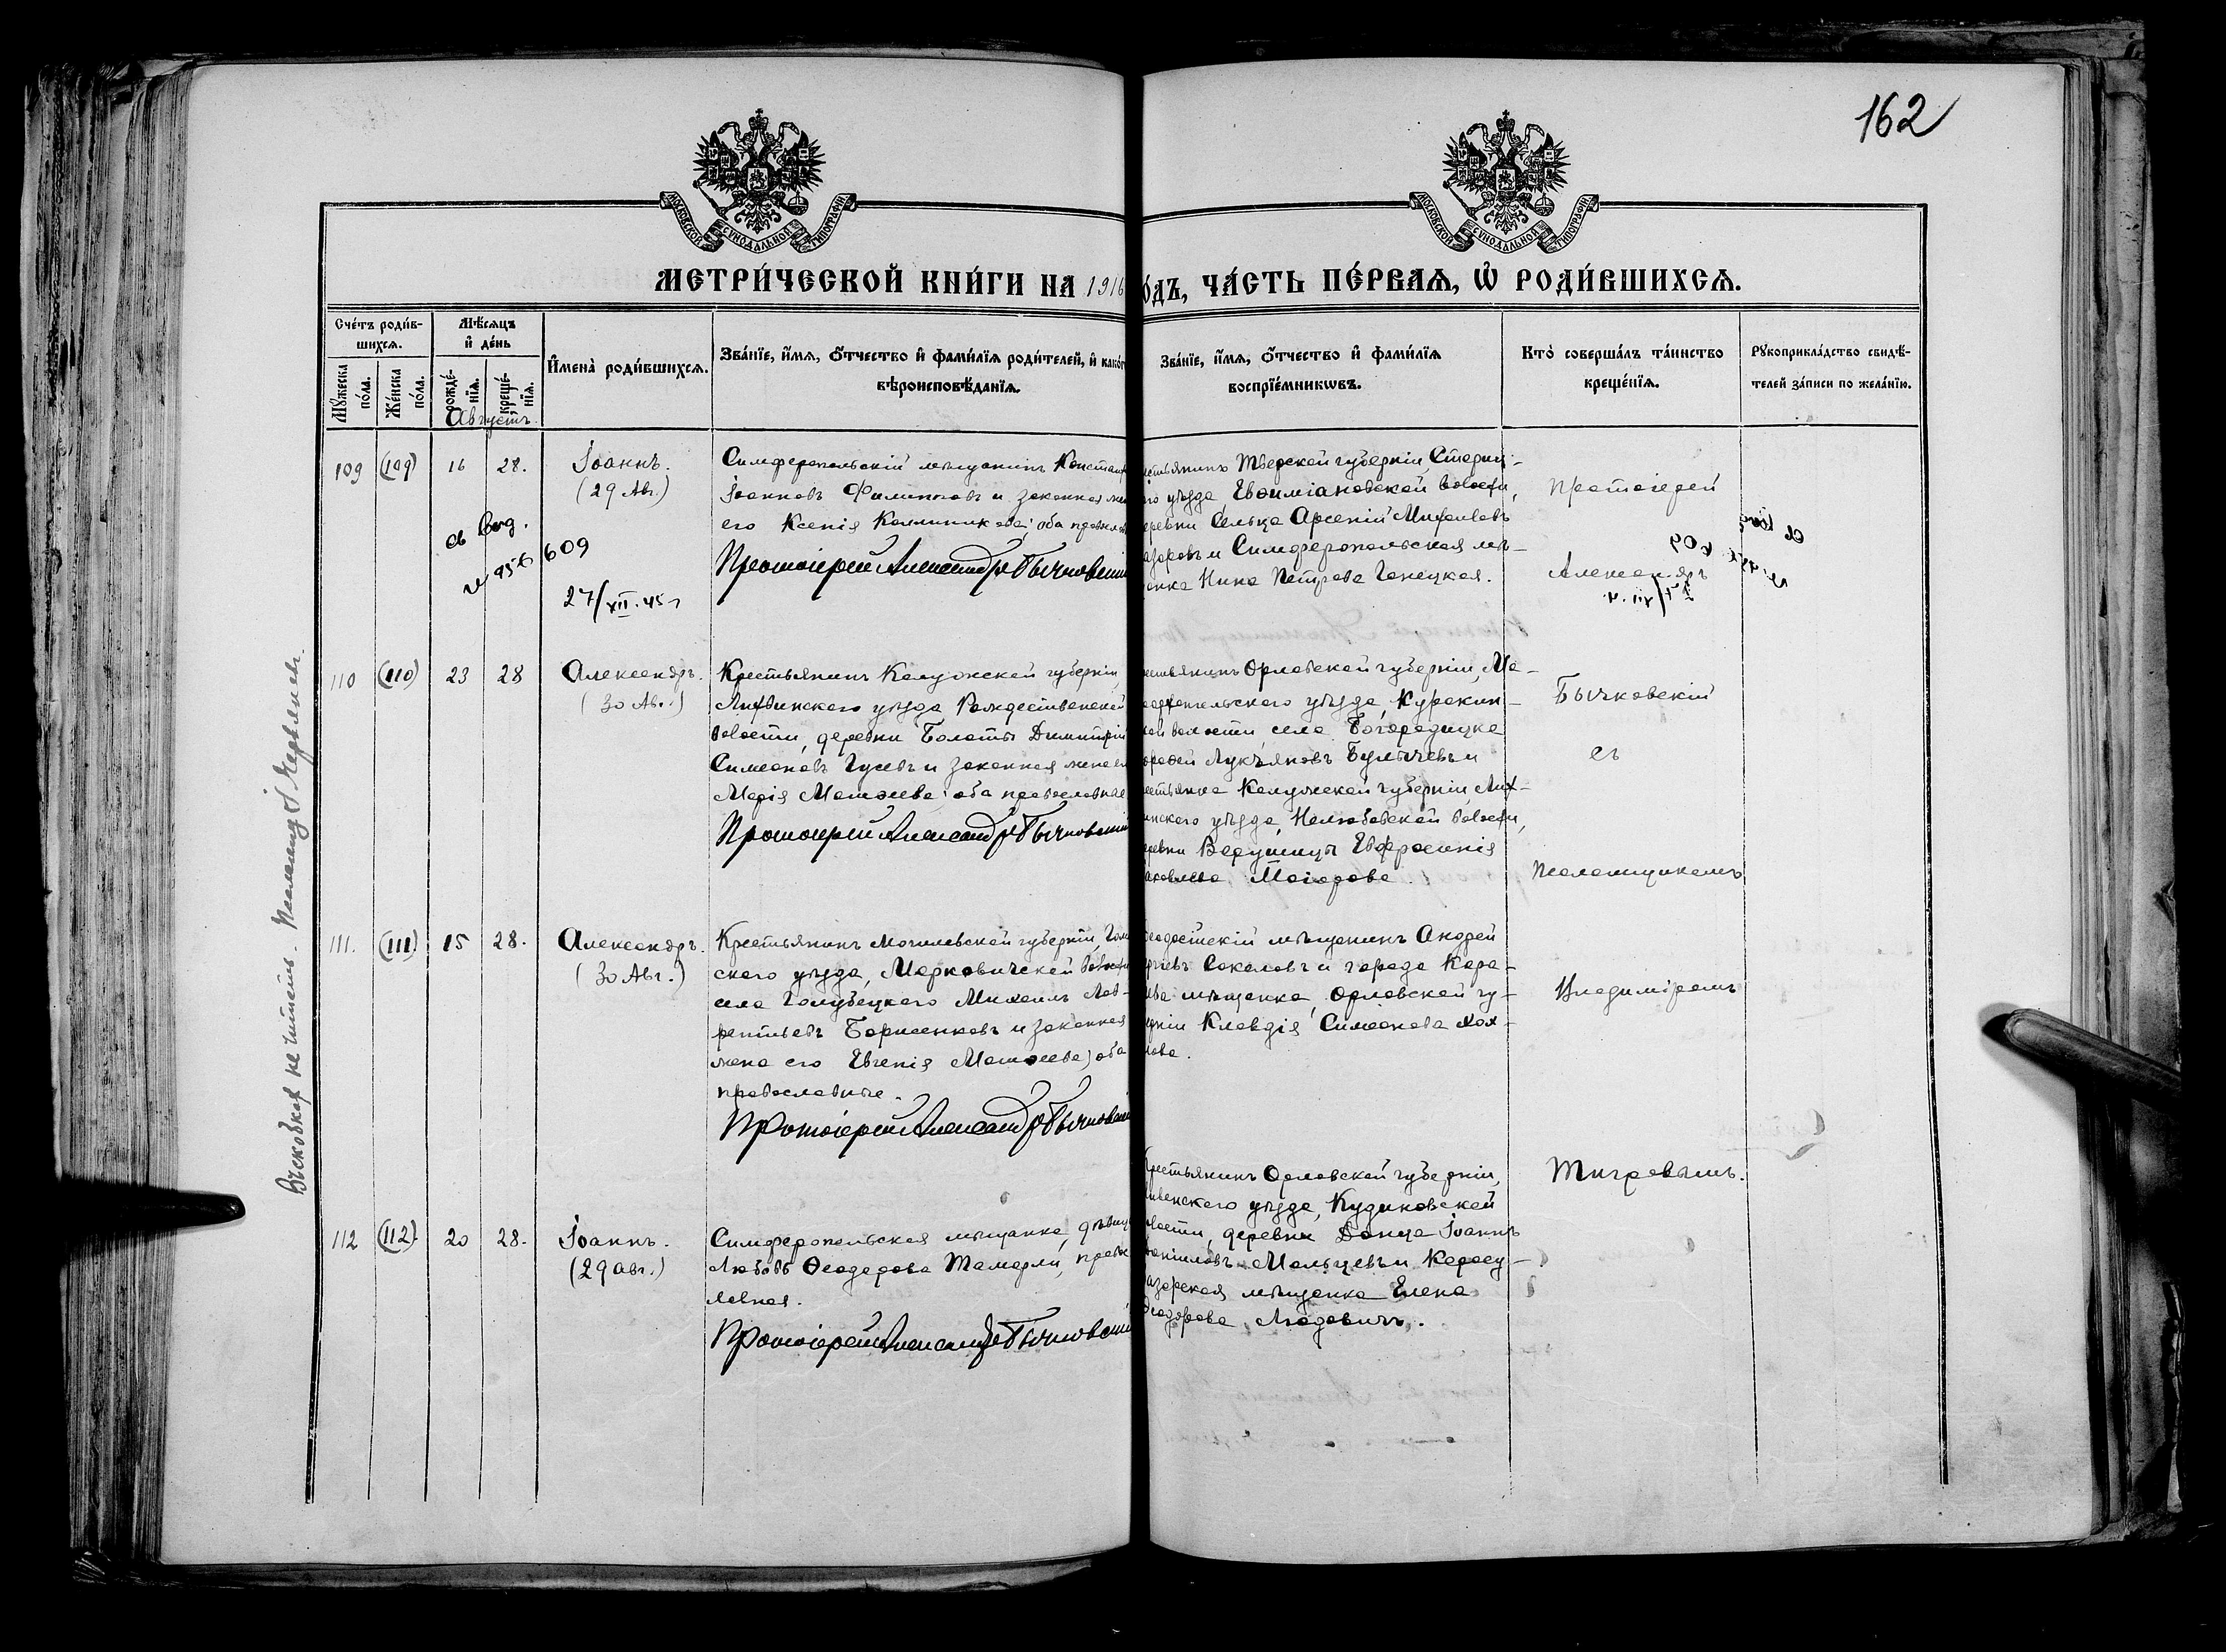 162
МОСКОВСКОЙ СѴНОДАЛЬНОЙ ТИПОГРАФІИ
МОСКОВСКОЙ СѴНОДАЛЬНОЙ ТИПОГРАФІИ
МЕТРИ́ЧЕСКОЙ КНИ́ГИ НА 1916
ОДЪ, ЧА́СТЬ ПЕ́РВАѦ, Ѿ РОДИ́ВШИХСѦ.
Сче́тъ роди́в-
шихсѧ.
Мꙋ́жеска по́ла.
Же́нска по́ла.
Мѣ́сѧцъ
и҆ де́нь
рожде́-
нїѧ.
креще́-
нїѧ.
Августъ.
И҆мена̀ роди́вшихсѧ.
Зва́нїе, и҆́мѧ, ѻ҆́тчество и҆ фами́лїѧ роди́телей, и҆ како́г
вѣроисповѣ́данїѧ.
Зва́нїе, и҆́мѧ, ѻ҆́тчество и҆ фами́лїѧ
воспрїе́мникѡвъ.
Кто̀ соверша́лъ та́инство
креще́нїѧ.
Рꙋкоприкла́дство свидѣ́-
телей за́писи по жела́нїю.
109 (109) 16 28.
Іоаннъ.
(29 Авг.)
609
27/XII.45 г
Симферопольскій мѣщанинъ Констан
Іоанновъ Филипповъ и законная же
его Ксенія Калиникова; оба правосла
Протоіерей Александръ Бычковскій
стьянинъ Тверской губерніи, Стариц-
го уѣзда Евѳиміановской волости,
еревни Сельца Арсеній Михаиловъ
азаровъ и Симферопольская мѣ-
анка Нина Петрова Ганецкая.
Протоіерей
Александръ
110 (110) 23 28
Александръ.
(30 Авг.)
Крестьянинъ Калужской губерніи,
Лихвинскаго уѣзда Рождественской
волости, деревни Болоты Димитрій
Симеоновъ Гусевъ и законная жена ег
Марія Матѳеева; оба православные
Протоіерей Александръ Бычковскій
естьянинъ Орловской губерніи, Ма-
оархангельскаго уѣзда, Куракин-
кой волости, села Богородицка
Лукьяновъ Булычевъ и
естьянка Калужской губерніи, Лих-
инскаго уѣзда, волости,
еревни Евфросинія
аковлева Маіорова.
Бычковскій
съ
псаломщикомъ
111. (111) 15 28.
Александръ.
(30 Авг.)
Крестьянинъ Могилевской губерніи, Гом
скаго уѣзда, Марковичской волости
села Голубецкаго Михаилъ Лав-
рентьевъ Борисенковъ и законная
жена его Евгенія Матѳеева; оба
православные.
Протоіерей Александръ Бычковскій
еодосійскій мѣщанинъ Андрей
Соколовъ и города Кара-
мѣщанка Орловской гу-
ерніи Клавдія Симеонова
нова.
Владиміромъ
112 (112). 20 28.
Іоаннъ.
(29 авг.)
Симферопольская мѣщанка, дѣвиц
Любовь Ѳеодорова Тамарли, правос
лавная.
Протоіерей Александръ Бычковскій
Крестьянинъ Орловской губерніи,
ивенскаго уѣзда, Кудиновской
волости, деревни Іоаннъ
Даніиловъ Мальцевъ и Карасу-
азарская мѣщанка Елена
Ѳеодорова Людовичъ.
Тигровымъ.